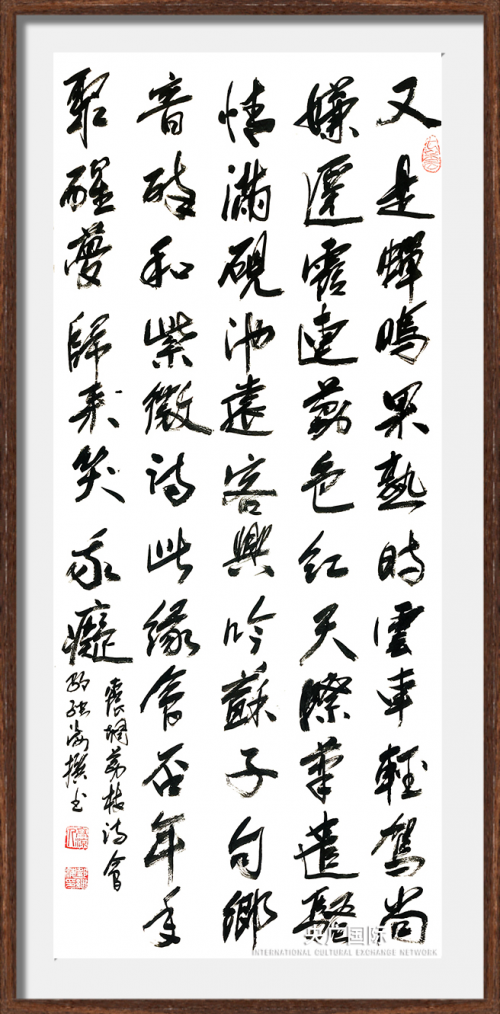 又是蟬鳴果熟時雲車輕駕尚
嫌遲霞連荔色紅天際筆遣騷
情滿硯池遠客興吟蘇子句鄉
音和紫微詩此緣會否年年
聚醒夢歸來笑我癡
荔枝詩會
撰書
央广国际
INTERNATIONAL CULTURAL EXCHANGE NETWORK